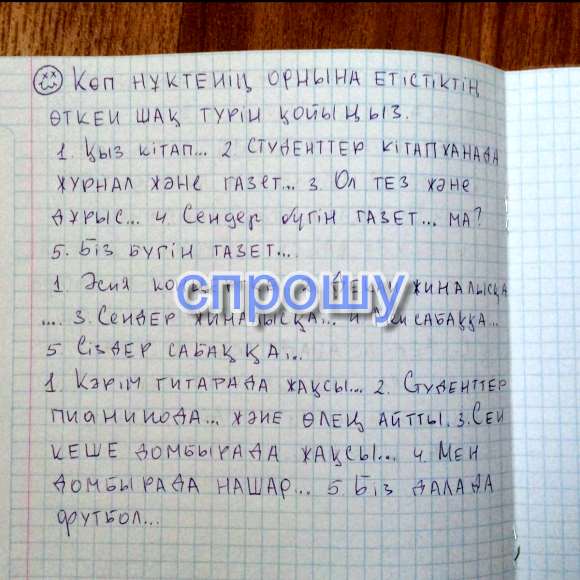 Көп нүктенің орнына етістіктің
өткен шақ түрін қойыңыз.
1. Қыз кітап... 2 Студенттер кітапханада
журнал және газет... 3. Ол тез және
дұрыс... 4. Сендер бүгін газет... ма?
5. Біз бүгін газет...
1. Әсия жиналысқа
спрошу
.... 3. Сендер жиналысқа... сабаққа...
5 Сіздер сабаққа...
1. Кәрім гитарада жақсы... 2. Студенттер
пианинода... және өлең айтты. 3. Сен
кеше домбырада жақсы... 4. Мен
домбырада нашар... 5. Біз далада
футбол...